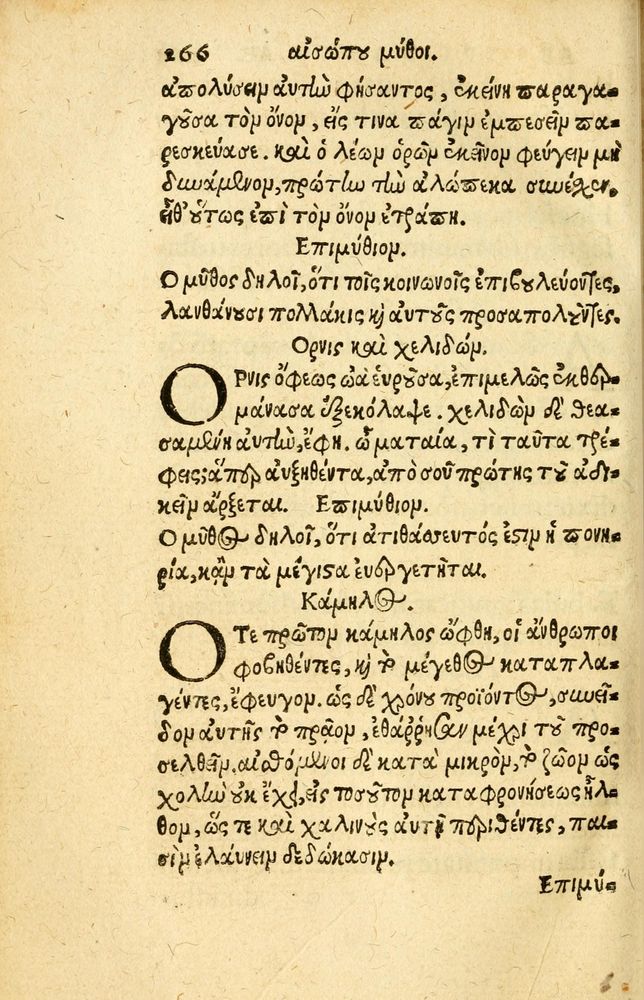 266 αἰσώπου μῦθοι.
ἀπολύσειν αὐτὴν φήσαντος, ἐκείνη παραγα-
γοῦσα τὸν ὄνον, εἴς τινα πάγιν ἐμπεσεῖν πα-
ρεσκεύασε. καὶ ὁ λέων ὁρῶν ἐκεῖνον φεύγειν μὴ
δυνάμενον, πρώτην τὴν ἀλώπεκα συνέσχεν,
εἶθ' οὕτως ἐπὶ τὸν ὄνον ἐτράπη.
Επιμύθιον.
Ο μῦθος δηλοῖ, ὅτι τοῖς κοινωνοῖς ἐπιβουλεύοντες,
λανθάνουσι πολλάκις καὶ αὐτοὺς προσαπολύντες.
Ορνις καὶ χελιδών.
ΟΡνις ὄφεως ὠὰ εὑροῦσα, ἐπιμελῶς ἐκθερ-
μάνασα ἐξεκόλαψε. χελιδὼν δὲ θεα-
σαμένη αὐτὴν, ἔφη. ὦ ματαία, τὶ ταῦτα τρέ-
φεις; ἅπερ αὐξηθέντα, ἀπὸ σοῦ πρώτης τοῦ ἀδι-
κεῖν ἄρξεται. Επιμύθιον.
Ο μῦθος δηλοῖ, ὅτι ἀτιθάσσευτός ἐστιν ἡ πονη-
ρία, κἂν τὰ μέγιστα εὐεργετῆται.
Κάμηλος.
ΟΤε πρῶτον κάμηλος ὤφθη, οἱ ἄνθρωποι
φοβηθέντες, καὶ τὸ μέγεθος καταπλα-
γέντες, ἔφευγον. ὡς δὲ χρόνου προϊόντος, συνεῖ-
δον αὐτῆς τὸ πρᾶον, ἐθάῤῥησαν μέχρι τοῦ προ-
σελθεῖν. αἰσθόμενοι δὲ κατὰ μικρὸν, τὸ ζῶον ὡς
χολὴν οὐκ ἔχει, εἰς τοσοῦτον καταφρονήσεως ἦλ-
θον, ὥς τε καὶ χαλινοὺς αὐτῇ περιθέντες, παι-
σὶν ἐλαύνειν δεδώκασιν.
Επιμύ-